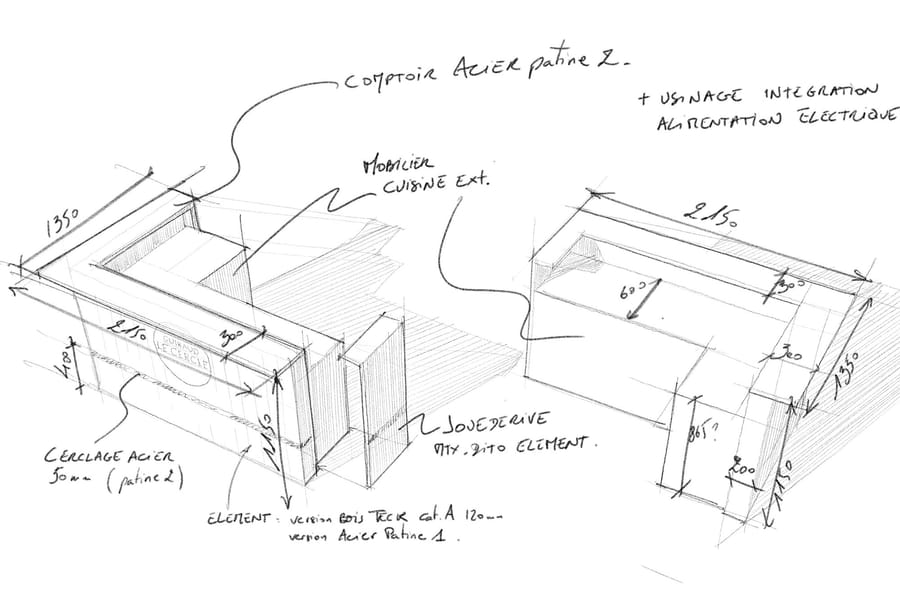 COMPTOIR ACIER patine 2.
+ USINAGE INTEGRATION
ALIMENTATION ELECTRIQUE
MOBILIER
CUISINE Ext.
1350
2150
300
2150
300
600
300
1350
LE CERCLE
1150
865?
200
1150
CERCLAGE ACIER
50mm (patine 2)
JOUE DERIVE
MTX. DITO ELEMENT.
ELEMENT : version BOIS TECK cat. A 120mm
version Acier Patine 1.